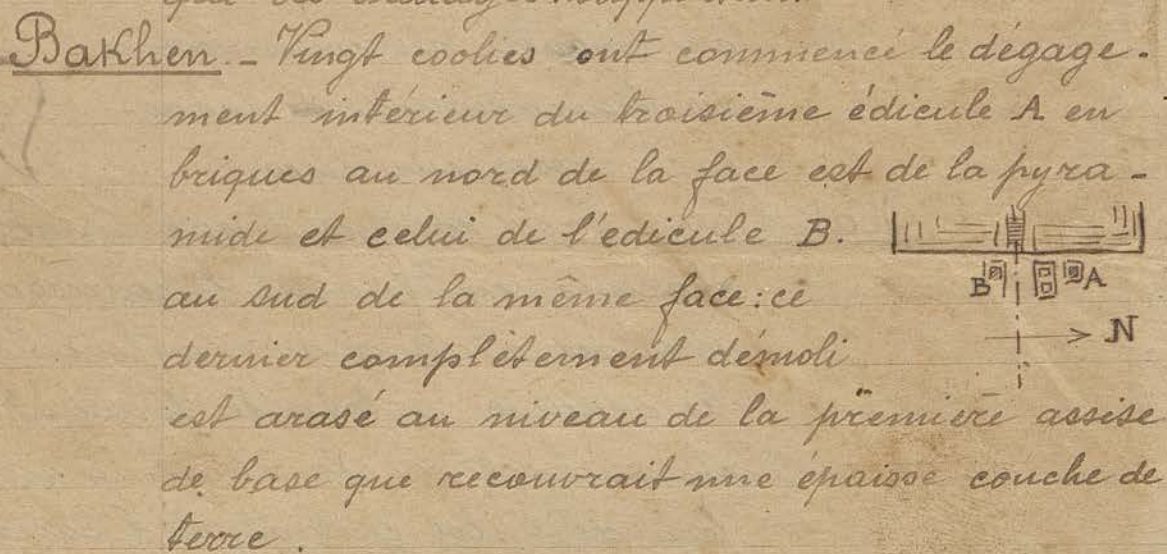 Bakhen. - Vingt coolies ont commencé le dégage-
ment intérieur du troisième édicule A en
briques au nord de la face est de la pyra-
mide et celui de l'édicule B.
au sud de la même face: ce
dernier complètement démoli
est arasé au niveau de la première assise
de base que recouvrait une épaisse couche de
terre.
B A
N